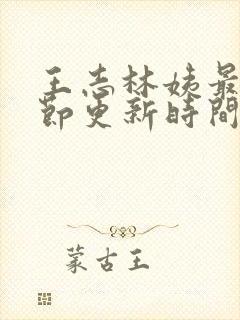 王志林姨最
節更新時間
蒙古王